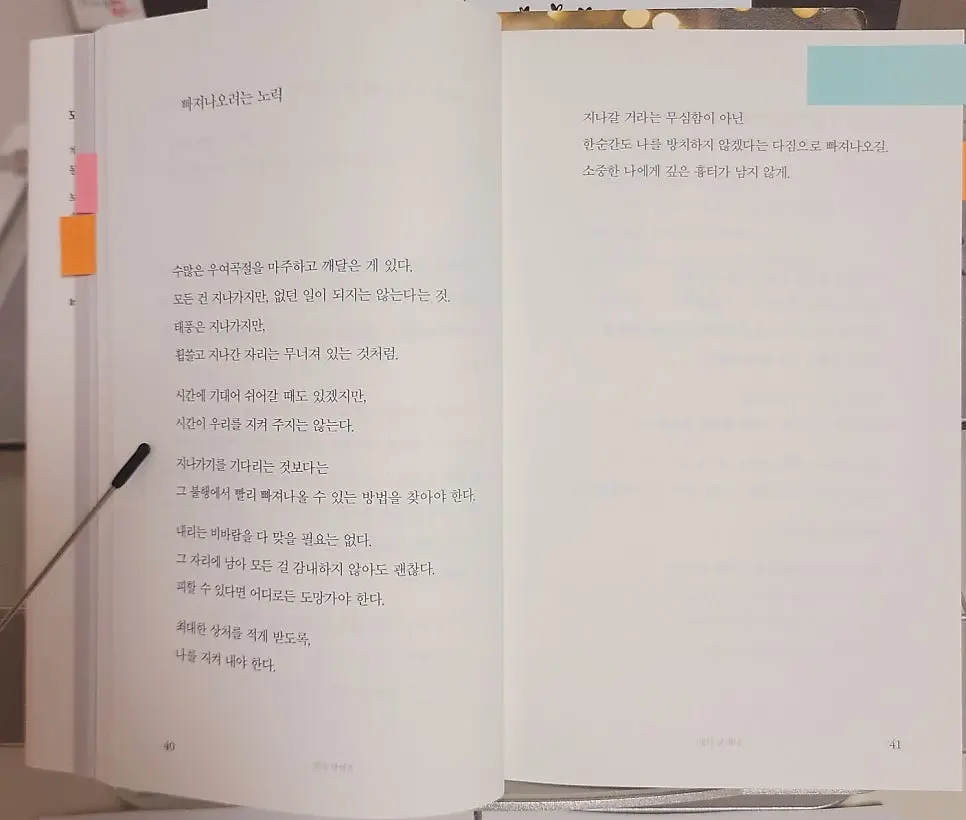 빠져나오려는 노력
수많은 우여곡절을 마주하고 깨달은 게 있다.
모든 건 지나가지만, 없던 일이 되지는 않는다는 것.
태풍은 지나가지만,
휩쓸고 지나간 자리는 무너져 있는 것처럼.
시간에 기대어 쉬어갈 때도 있겠지만,
시간이 우리를 지켜 주지는 않는다.
지나가기를 기다리는 것보다는
그 불행에서 빨리 빠져나올 수 있는 방법을 찾아야 한다.
내리는 비바람을 다 맞을 필요는 없다.
그 자리에 남아 모든 걸 감내하지 않아도 괜찮다.
피할 수 있다면 어디로든 도망가야 한다.
최대한 상처를 적게 받도록,
나를 지켜 내야 한다.
40
지나갈 거라는 무심함이 아닌
한순간도 나를 방치하지 않겠다는 다짐으로 빠져나오길.
소중한 나에게 깊은 흉터가 남지 않게.
41